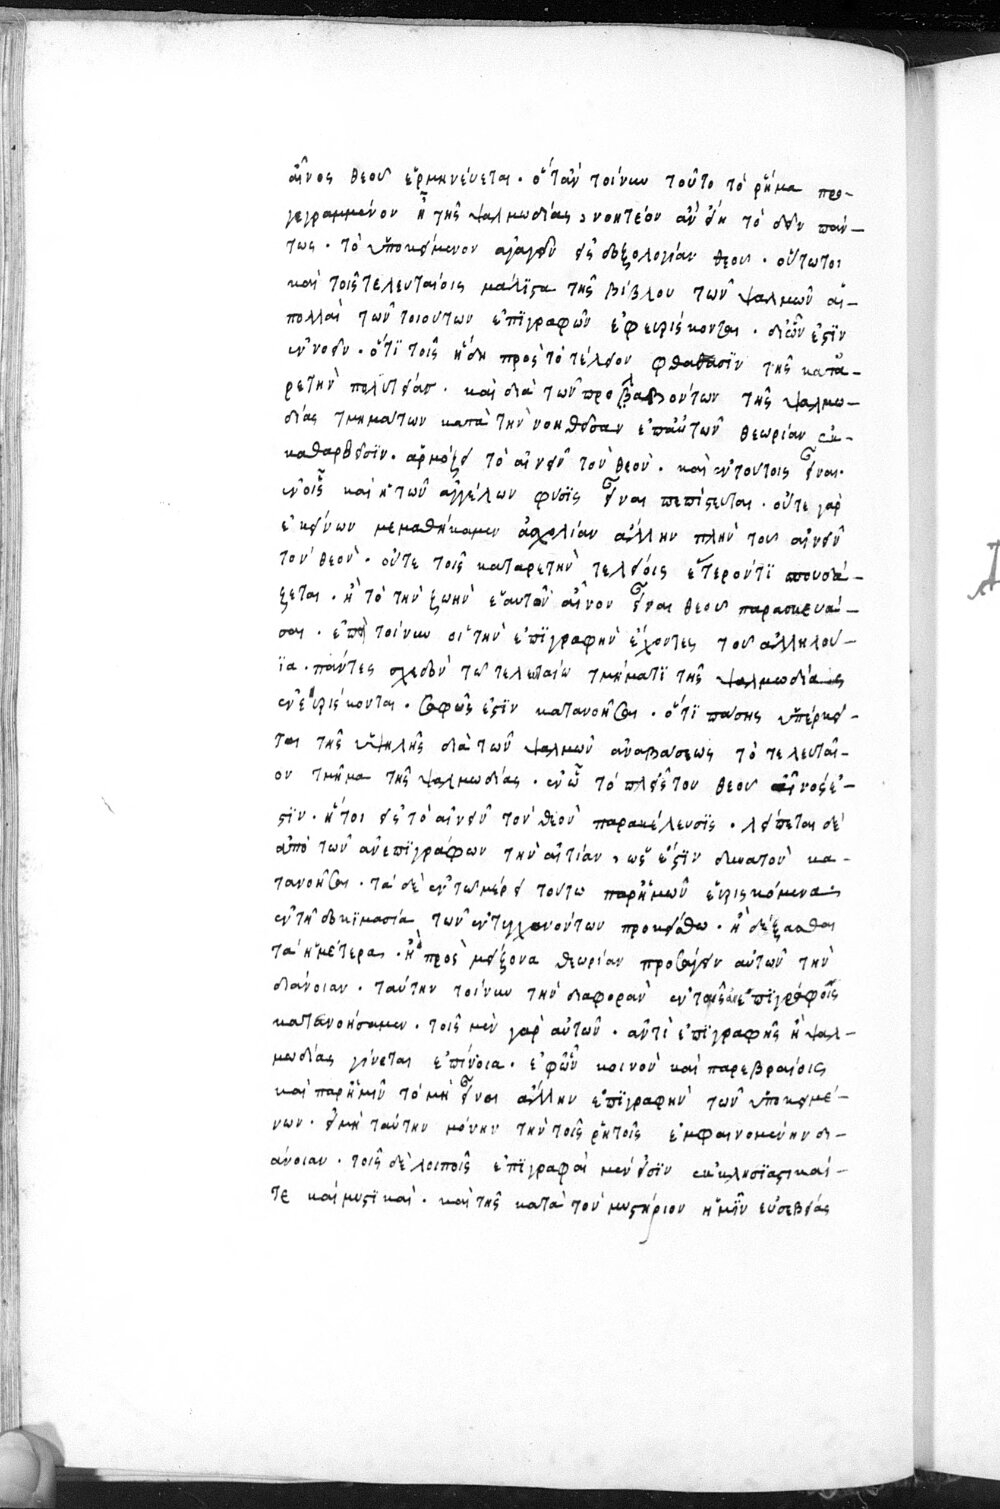 αἶνος θεοῦ ἑρμηνεύεται. ὅταν τοίνυν τοῦτο τὸ ῥῆμα προ-
γεγραμμένον ᾖ τῆς ψαλμωδίας, νοητέον ἂν εἴη τὸ δεῖν πάν-
τως. τὸ ὑποκείμενον ἀγαγεῖν εἰς δοξολογίαν θεοῦ. οὕτωτοι
καὶ τοῖς τελευταίοις μάλιστα τῆς βίβλου τῶν ψαλμῶν αἱ
πολλαὶ τῶν τοιούτων ἐπιγραφῶν ἐφευρίσκονται. δι ὧν ἐστὶν
ἐννοεῖν. ὅτι τοῖς ἤδη πρὸς τὸ τέλειον φθάσασιν τῆς κατα-
ρετὴν πολιτείας. καὶ διὰ τῶν προλαβόντων τῆς ψαλμω-
δίας τμημάτων κατὰ τὴν νοηθεῖσαν ἐπ αὐτῶν θεωρίαν ἐκ-
καθαρθεῖσιν. ἁρμόζει τὸ αἰνεῖν τὸν θεὸν. καὶ ἐν τούτοις εἶναι.
ἐν οἷς καὶ ἡ τῶν ἀγγέλων φύσις εἶναι πεπίστευται. οὔτε γὰρ
ἐκείνων μεμαθήκαμεν ἀσχολίαν ἄλλην πλὴν τοῦ αἰνεῖν
τὸν θεὸν. οὔτε τοῖς καταρετὴν τελείοις ἕτερόν τι σπουδά-
ζεται. ἢ τὸ τὴν ζωὴν ἑαυτῶν αἶνον εἶναι θεοῦ παρασκευά-
σαι. ἐπεὶ τοίνυν οἱ τὴν ἐπιγραφὴν ἔχοντες τοῦ ἀλληλού-
ϊα. πάντες σχεδὸν τῶ τελευταίω τμήματι τῆς ψαλμωδίας
ἐνευρίσκονται. σαφῶς ἐστὶν κατανοῆσαι. ὅτι πάσης ὑπέρκει-
ται τῆς ὑψηλῆς διὰ τῶν ψαλμῶν ἀναβάσεως τὸ τελευταῖ-
ον τμῆμα τῆς ψαλμωδίας. ἐν ὧ τὸ πλεῖστον θεοῦ αἶνός ἐ-
στιν. ἤτοι εἰς τὸ αἰνεῖν τὸν θεὸν παρακέλευσις. λείπεται δὲ
ἀπὸ τῶν ἀνεπιγράφων τὴν αἰτίαν, ὡς ἔστιν δυνατὸν κα-
τανοῆσαι. τὰ δὲ ἐν τῶ μέρει τούτω παρ ἡμῶν εὑρισκόμενα
ἐν τῆ δοκιμασία τῶν ἐντυγχανόντων προκείσθω. ἢ δέξασθαι
τὰ ἡμέτερα. ἢ πρὸς μείζονα θεωρίαν προσάγειν αὐτῶν τὴν
διάνοιαν. ταύτην τοίνυν τὴν διαφορὰν ἐν τοῖς ἀνεπιγράφοις
κατενοήσαμεν. τοῖς μὲν γὰρ αὐτῶν. ἀντὶ ἐπιγραφῆς ἡ ψαλ-
μωδίας γίνεται ἐπίνοια. ἐφ ὧν κοινὸν καὶ παρ εβραίοις
καὶ παρ ἡμῖν τὸ μὴ εἶναι ἄλλην ἐπιγραφὴν τῶν ὑποκειμέ-
νων. εἰ μὴ ταύτην μόνην τὴν τοῖς ῥητοῖς ἐμφαινομένην δι-
άνοιαν. τοῖς δὲ λοιποῖς ἐπιγραφαὶ μέν εἰσιν ἐκκλησιαστικαί
τε καὶ μυστικαὶ. καὶ τῆς κατὰ τὸν μυστήριον ἡμῖν εὐσεβείας